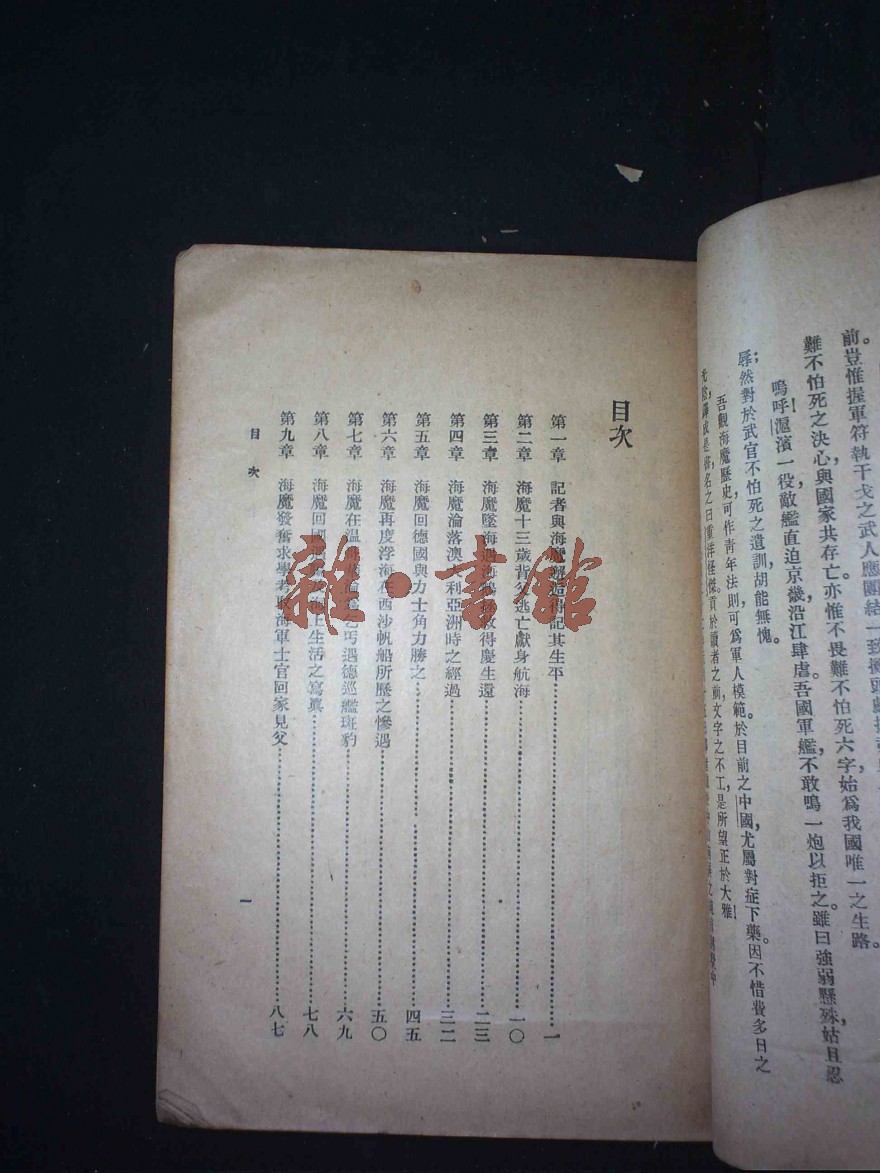 前。豈惟握軍符執干戈之武人應團結一致
難不怕死之決心與國家共存亡。亦惟不畏難不怕死六字始爲我國唯一之生路。
嗚呼！滬濱一役敵艦直迫京畿沿江肆虐。吾國軍艦不敢鳴一炮以拒之。雖曰強弱懸殊姑且忍
辱；然對於武官不怕死之遺訓胡能無愧。
吾觀海魔歷史，可作青年法則可爲軍人模範。於目前之中國，尤屬對症下藥。因不惜費多日之
譯成是書名之曰重洋怪傑。貢於讀者之前，文字之不工，是所望正於大雅！
目次
第一章 記者與海魔邂逅得記其生平 一
第二章 海魔十三歲背父逃亡獻身航海 一〇
第三章 海魔墜海遇海鷗拯救得慶生還 二三
第四章 海魔淪落澳大利亞洲時之經過 三二
第五章 海魔回德國與力士角力勝之 四五
第六章 海魔再度浮海在西沙帆船所歷之慘遇 五〇
第七章 海魔在温 乞丐遇德巡艦斑豹 六九
第八章 海魔回國 海上生活之寫真 七八
第九章 海魔發奮求學考取海軍士官回家見父 八七
目次
一
雜·書館